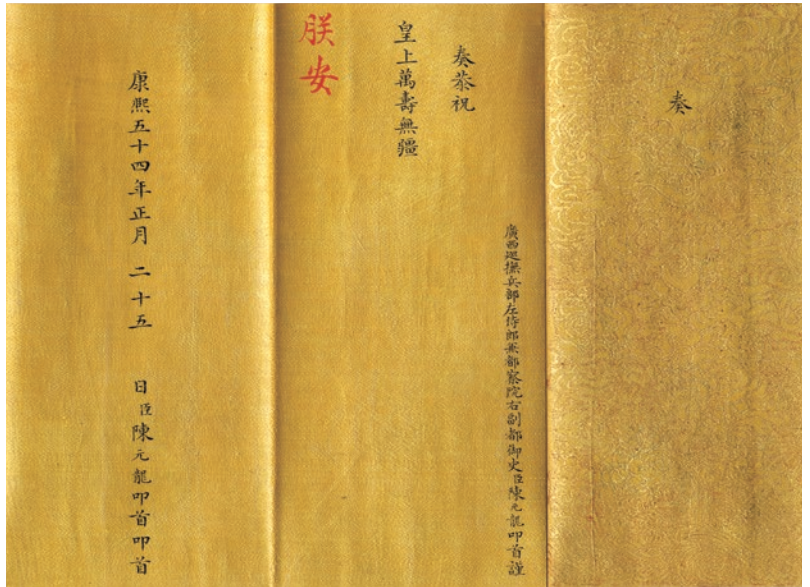 奏
廣西巡撫兵部左侍郎兼都察院右副都御史臣陳元龍叩首謹
奏恭祝
皇上萬壽無疆
朕安
康熙五十四年正月 二十五 日臣陳元龍叩首叩首